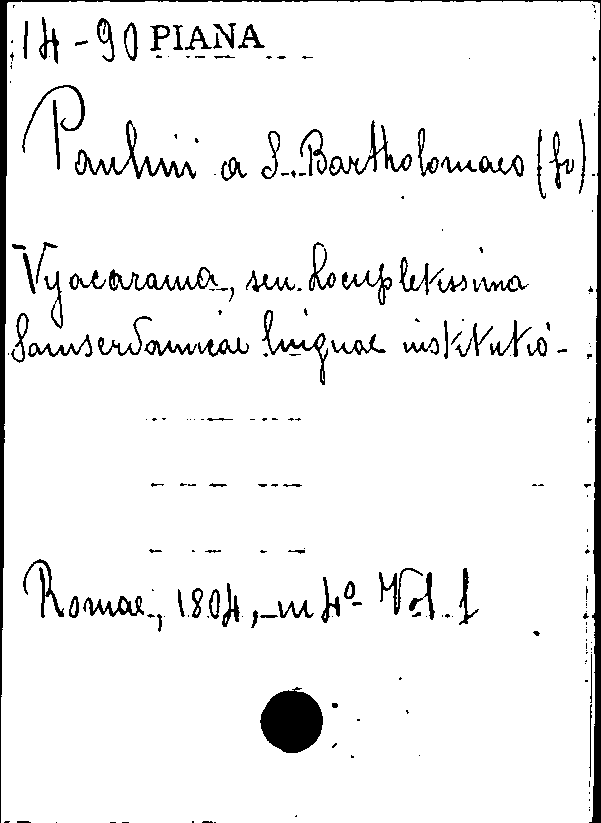 14-90 PIANA
Paulini a S. Bartholomaeo (fr)
Vyacarana, seu locupletissima
Samserdamicae linguae institutio -
Romae, 1804, in 4º Vol. 1